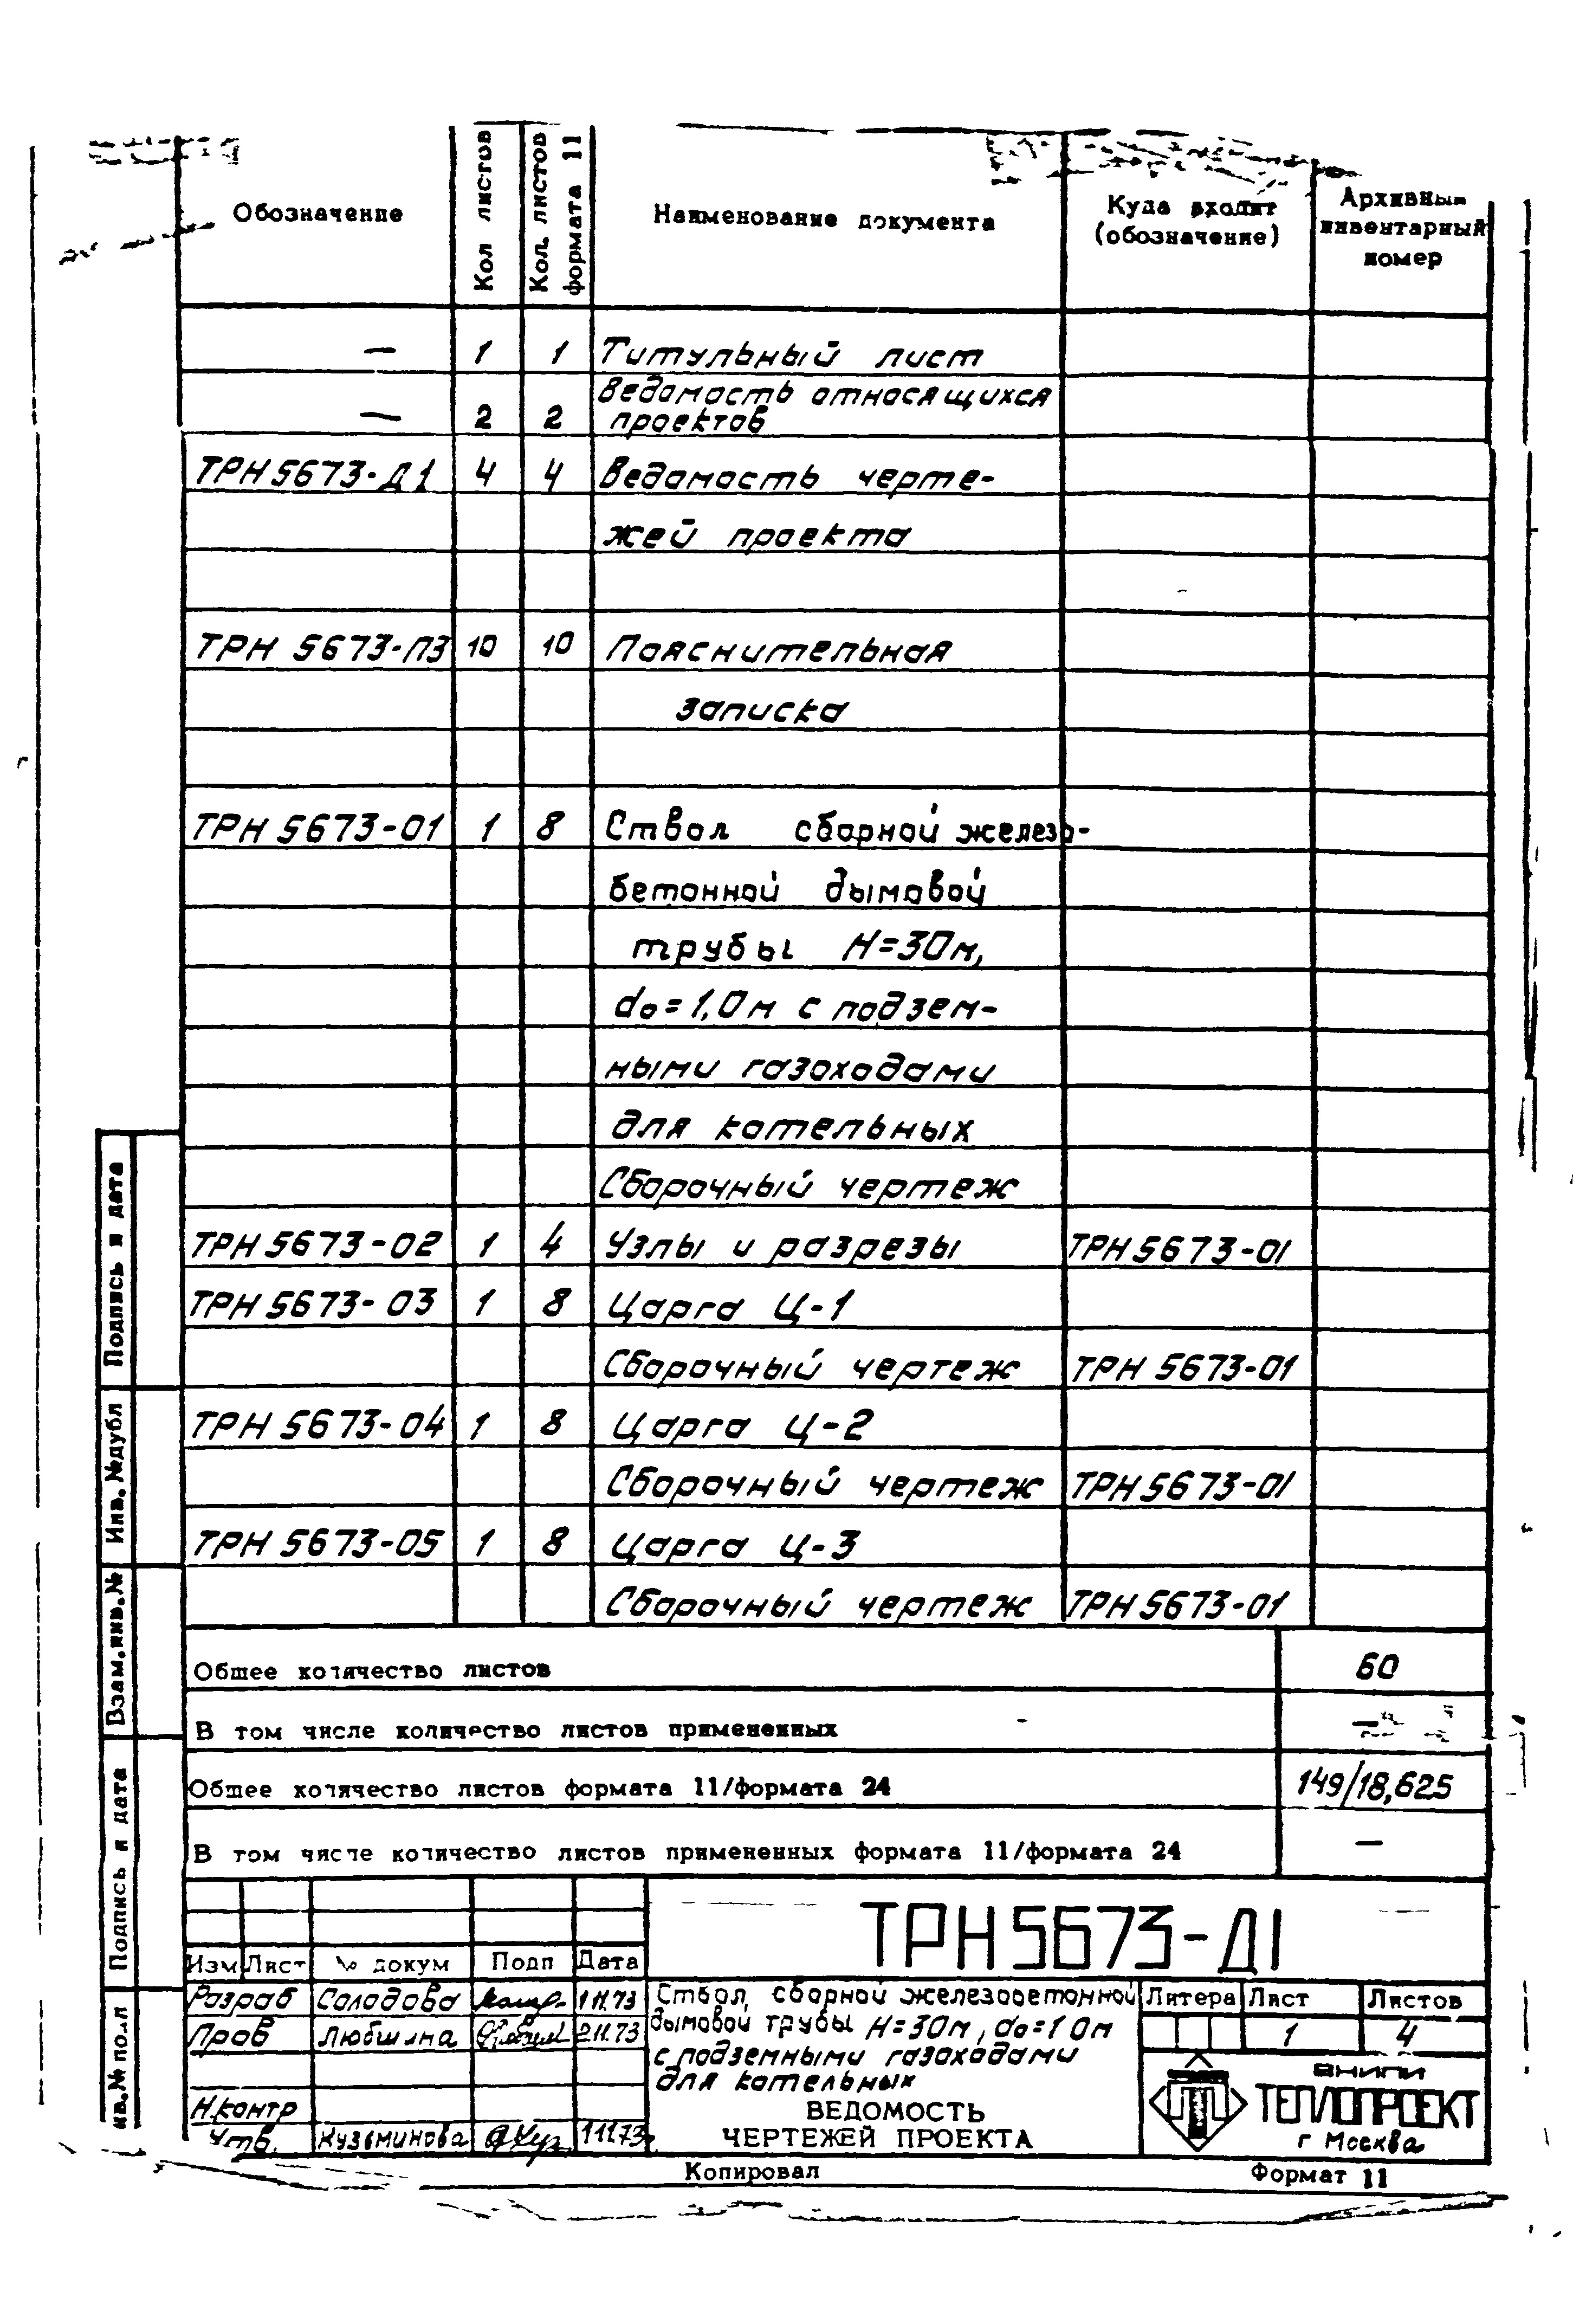 Обозначение
Кол листов
Кол. листов формата 11
Наименование документа
Куда входит (обозначение)
Архивный инвентарный номер
— 1 1 Титульный лист
— 2 2 Ведомость относящихся проектов
ТРН 5673-Д1 4 4 Ведомость черте-
жей проекта
ТРН 5673-ПЗ 10 10 Пояснительная
записка
ТРН 5673-01 1 8 Ствол сборной железо-
бетонной дымовой
трубы Н=30м,
do=1,0м с подзем-
ными газоходами
для котельных
Сборочный чертеж
ТРН 5673-02 1 4 Узлы и разрезы ТРН 5673-01
ТРН 5673-03 1 8 Царга Ц-1
Сборочный чертеж ТРН 5673-01
ТРН 5673-04 1 8 Царга Ц-2
Сборочный чертеж ТРН 5673-01
ТРН 5673-05 1 8 Царга Ц-3
Сборочный чертеж ТРН 5673-01
Общее количество листов 60
В том числе количество листов примененных —
Общее количество листов формата 11/формата 24 149/18,625
В том числе количество листов примененных формата 11/формата 24 —
Подпись и дата
Инв. № дубл
Взам.инв.№
Подпись и дата
нв.№ по.л
ТРН 5673-Д1
Изм Лист № докум Подп Дата
Разраб Солодова 1.11.73
Пров Любшина 2.11.73
Н.контр
Утв. Кузьминова 1.11.73
Ствол сборной железобетонной
дымовой трубы Н=30м, do=1 0м
с подземными газоходами
для котельных
ВЕДОМОСТЬ
ЧЕРТЕЖЕЙ ПРОЕКТА
Литера Лист Листов
1 4
ВНИПИ
ТЕПЛОПРОЕКТ
г Москва
Копировал
Формат 11